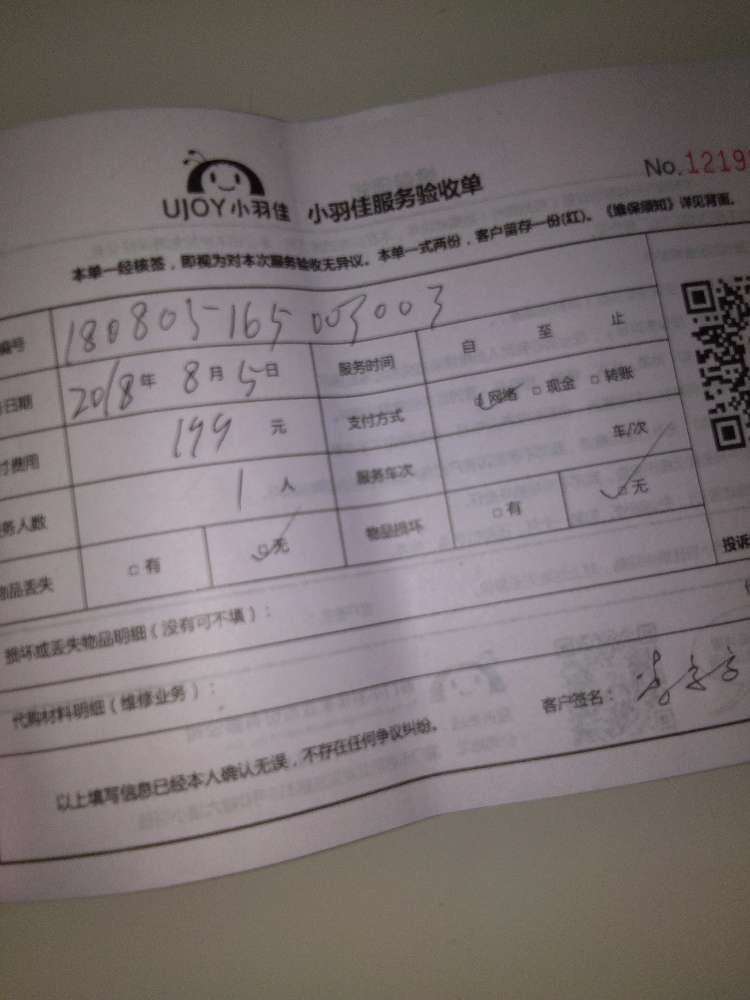 No.1219
UJOY小羽佳 小羽佳服务验收单
本单一经核签，即视为对本次服务验收无异议。本单一式两份，客户留存一份(红)。《维保须知》详见背面。
编号 180805165003003
日期 2018年 8月5日 服务时间 自 至 止
付费用 199 元 支付方式 网络 现金 转账
务人数 1 人 服务车次 车/次
物品丢失 有 无 物品损坏 有 无
投诉
损坏或丢失物品明细（没有可不填）：
代购材料明细（维修业务）：
客户签名：
以上填写信息已经本人确认无误，不存在任何争议纠纷。